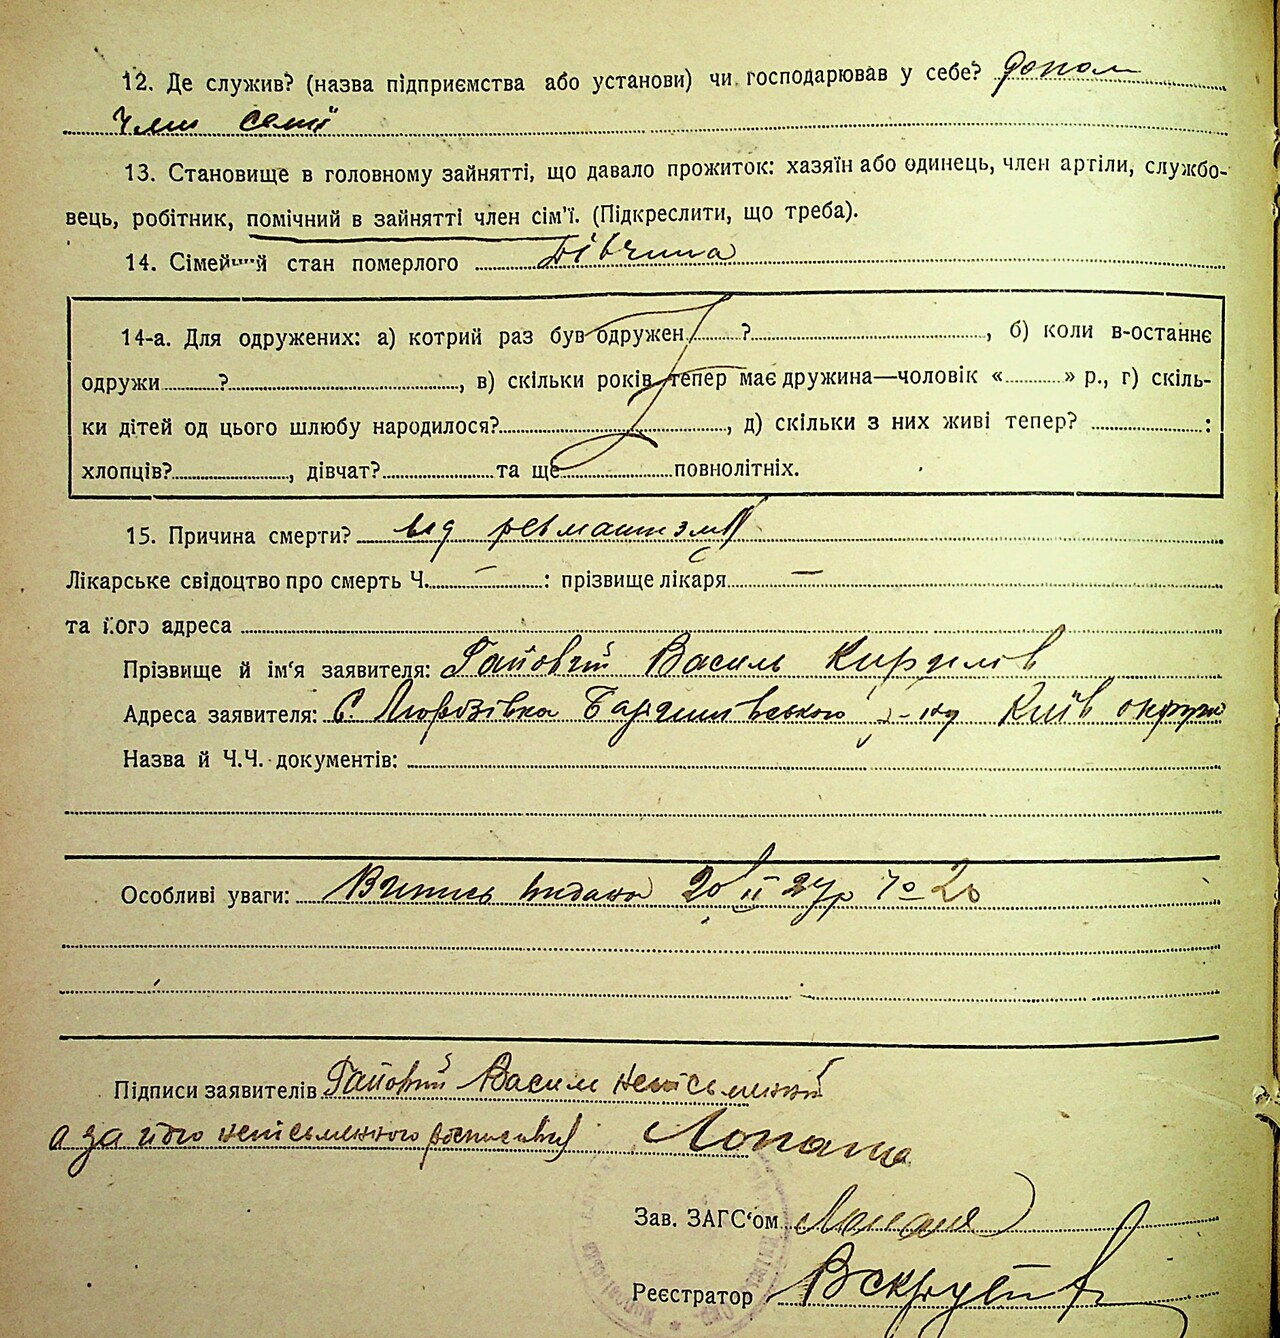 12. Де служив? (назва підприємства або установи) чи господарював у себе? допом
член семії
13. Становище в головному зайнятті, що давало прожиток: хазяїн або одинець, член артіли, службо-
вець, робітник, помічний в зайнятті член сім'ї. (Підкреслити, що треба).
14. Сімейний стан померлого дівчина
14-а. Для одружених: а) котрий раз був одружен ? , б) коли в-останнє
одружи ? , в) скільки років тепер має дружина—чоловік « » р., г) скіль-
ки дітей од цього шлюбу народилося? , д) скільки з них живі тепер? :
хлопців? , дівчат? та ще повнолітніх.
15. Причина смерти? від ревматизму
Лікарське свідоцтво про смерть Ч. — : прізвище лікаря —
та його адреса
Прізвище й ім'я заявителя: Гайовий Василь Кирилов
Адреса заявителя: С. Морозівка Баришівського р-ну Київ округи
Назва й Ч.Ч. документів:
Особливі уваги: Витись видано 20 II 27р № 20
Підписи заявителів Гайовий Васили неписьменний
а за його неписьменного росписався Лопата
Зав. ЗАГС'ом Лопата
Реєстратор